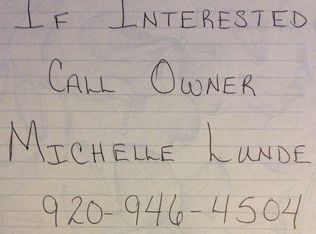 IF INTERESTED
CALL OWNER
MICHELLE LUNDE
920-946-4504